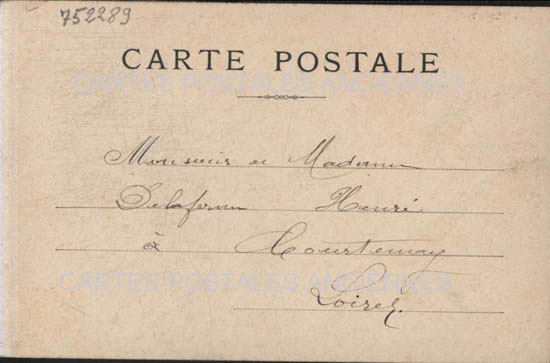 752289
CARTE POSTALE
CARTES POSTALES ANCIENNES
Monsieur et Madame
Henri
à Courtenay
CARTES POSTALES ANCIENNES
Loiret.